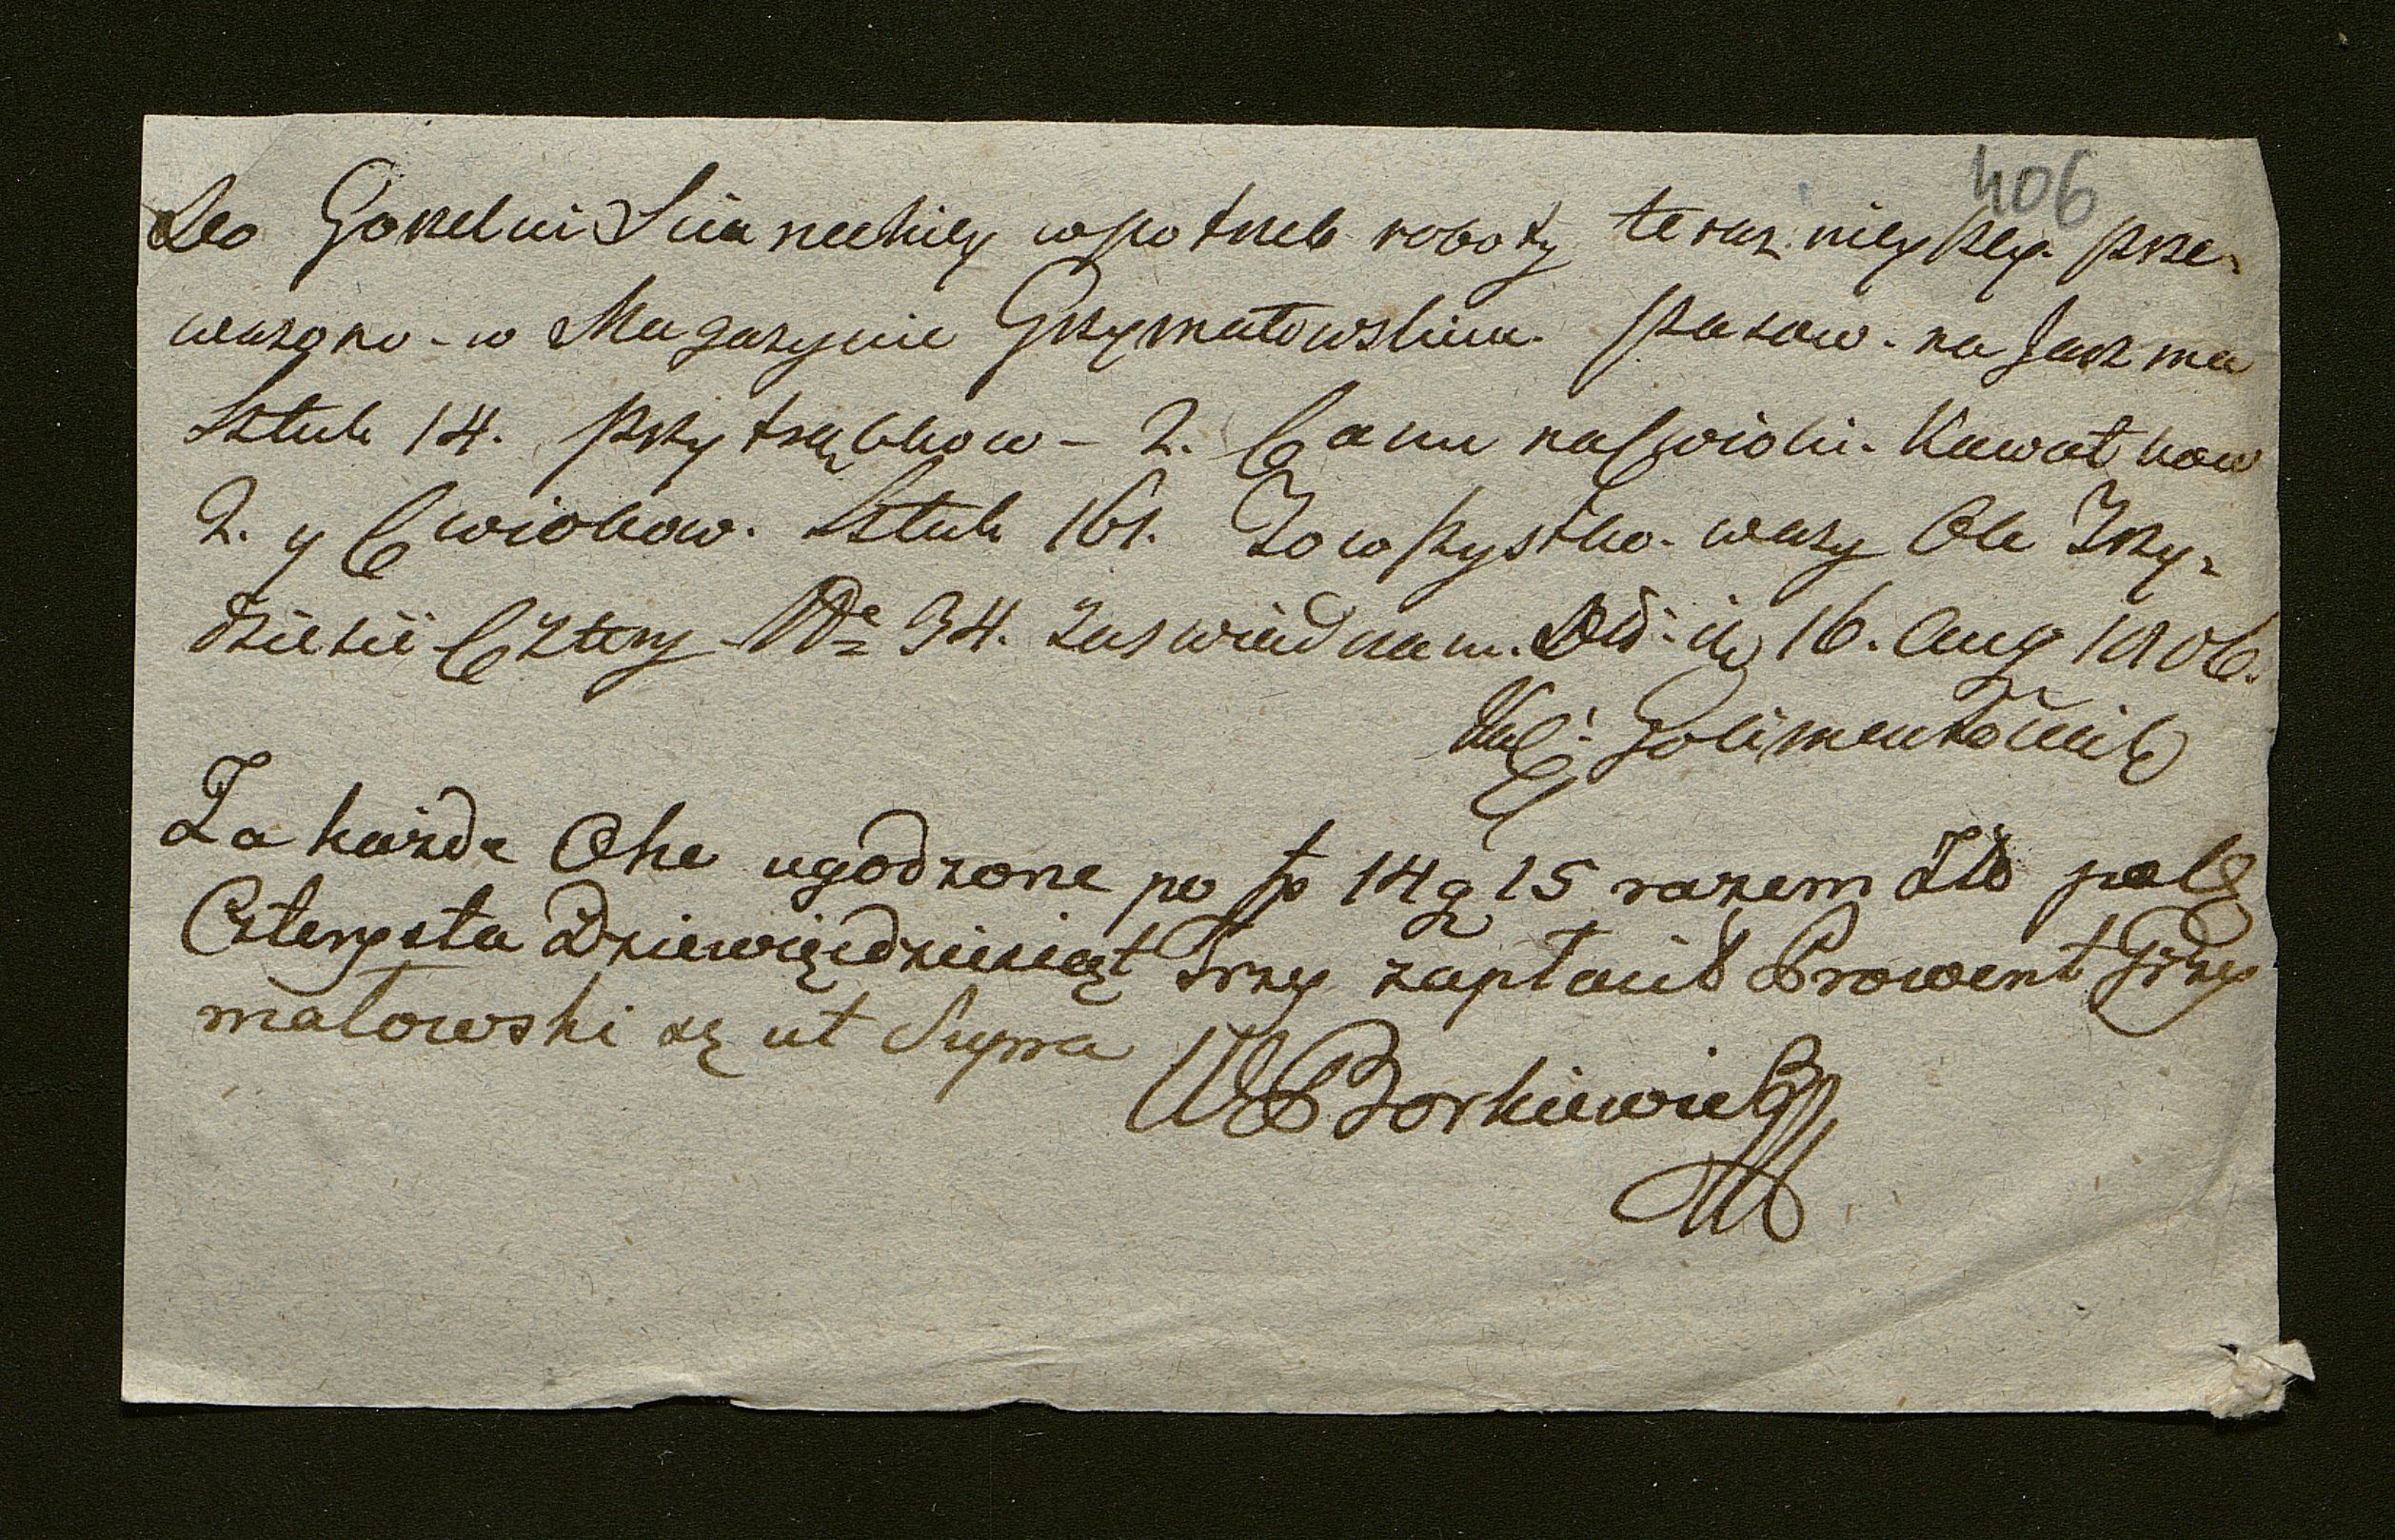 406
Do Gorzelni Scianeckiey w potrzeb roboty teraznieyszey. prze-
wazono - w Magazynie Grzymałowskim. Pasow. na Jarzma
Sztuk 14. przytrąbkow - 2. Canu na Cwioki. Kawałkow
2. y Cwiokow. Sztuk 161. To wszystko. wazy Ok Trzy-
dziesci Cztery Nro 34. zaswiadczam. Dto. in 16. Aug 1806.
Golimentowicz
Za każde Oke ugodzone po fp 14 g 15 razem Zło pol
Czterysta Dziewięćdziesiąt Trzy zapłacił Prowent Grzy
małowski ut Supra
W Borkiewicz